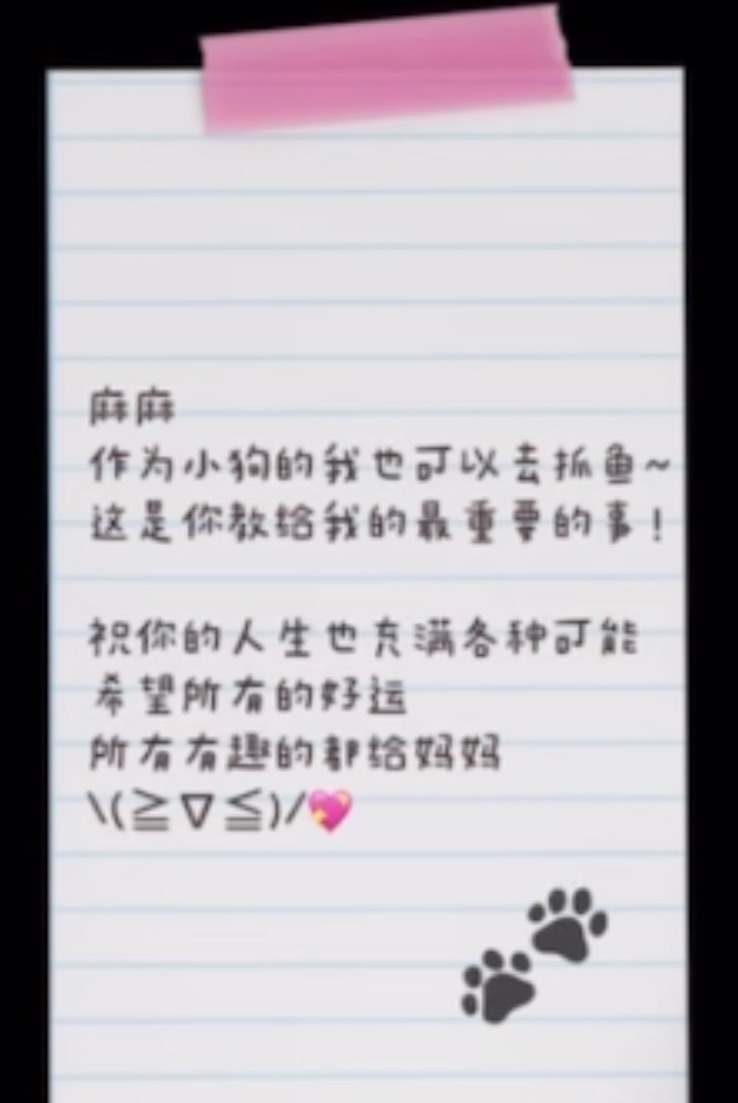 麻麻
作为小狗的我也可以去抓鱼~
这是你教给我的最重要的事!
祝你的人生也充满各种可能
希望所有的好运
所有有趣的都给妈妈
\(≧∇≦)/💖